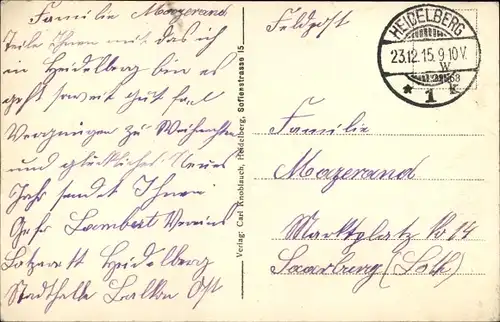 Familie Mazerand
Teile Ihnen mit das ich
in Heidelberg bin es
geht soweit gut
Vergnügen zu Weihnachten
und glückliches Neues
Jahr sendet Ihnen
Lambert Vereins
Lazarett Heidelberg
Stadthalle Ost
Verlag: Carl Knoblauch, Heidelberg, Sofienstrasse 15.
Feldpost
HEIDELBERG
23.12.15.9-10V.
* 1 k
Familie
Mazerand
Marktplatz No 14
Saarburg (Loth)